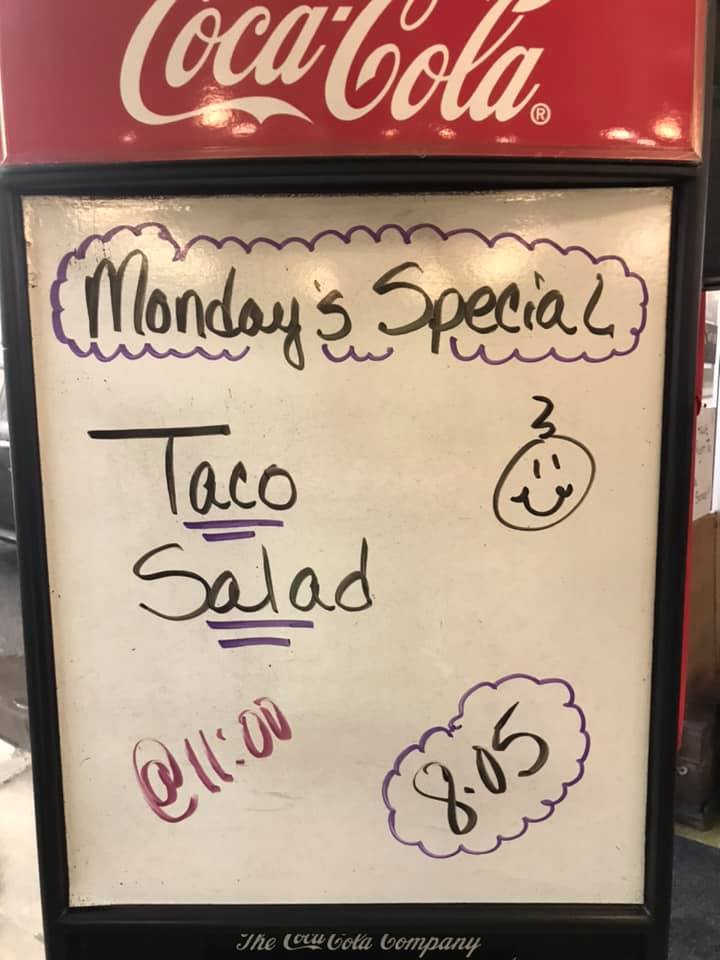 Coca-Cola®
Monday's Special
Taco
Salad
@11:00
8.05
The Coca-Cola Company